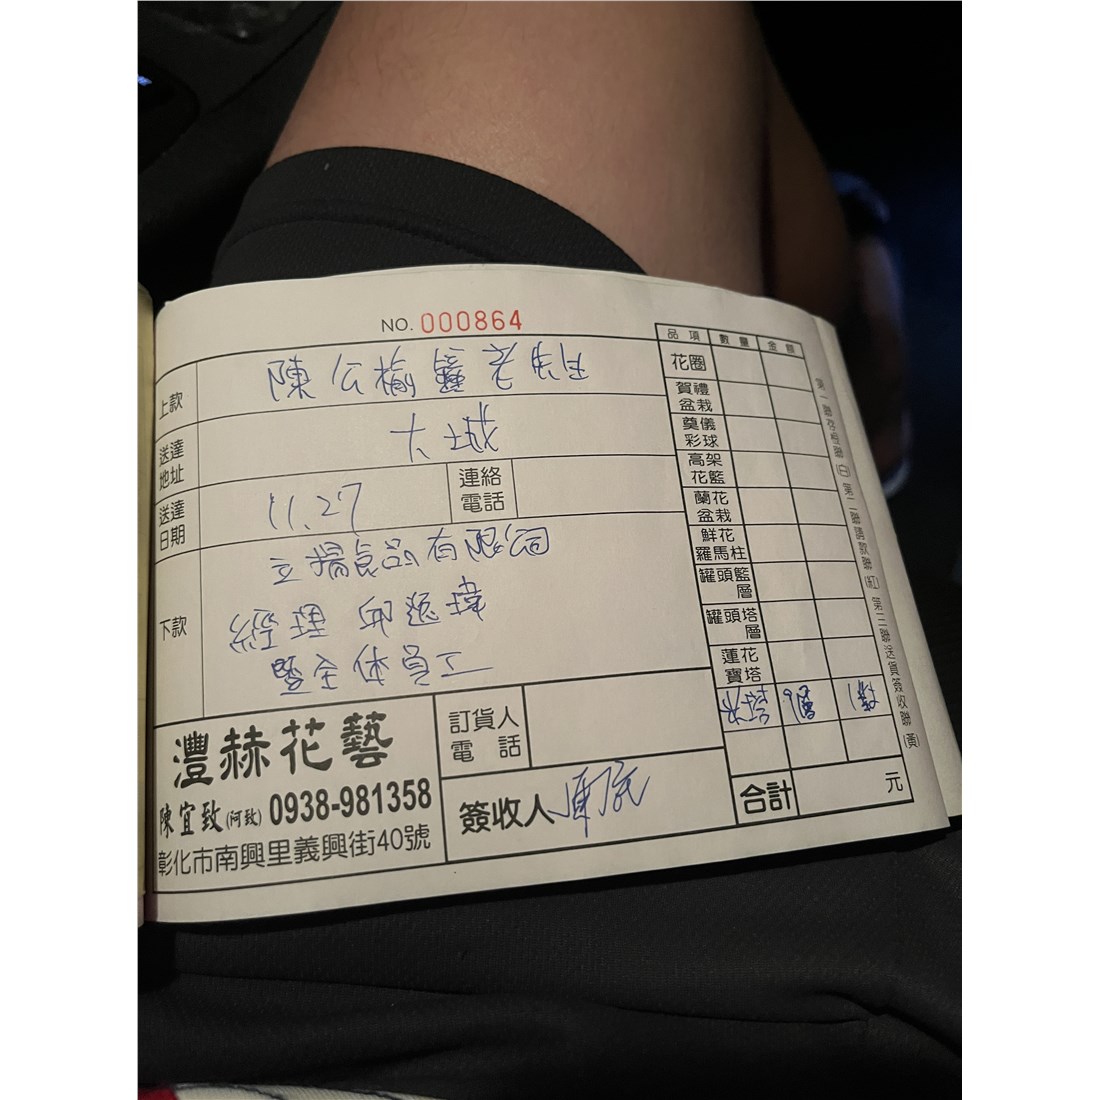 NO. 000864
上款
陳公
送達地址
大城
送達日期
11.27
連絡電話
下款
立揚食品有限公司
經理 邱
暨全体員工
灃赫花藝
陳宜致(阿致) 0938-981358
彰化市南興里義興街40號
訂貨人電話
簽收人
品項 數量 金額
花圈
賀禮盆栽
奠儀彩球
高架花籃
蘭花盆栽
鮮花羅馬柱
罐頭籃層
罐頭塔層
蓮花寶塔
合計 元
第一聯存根聯(白) 第二聯請款聯(紅) 第三聯送貨簽收聯(黃)